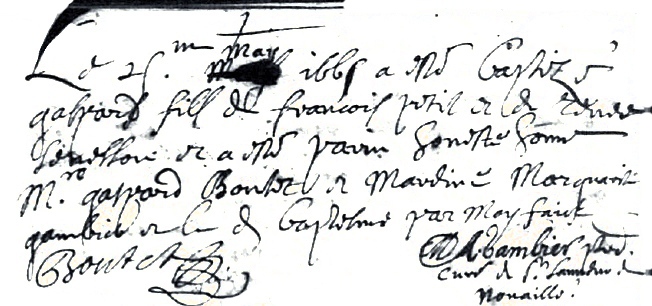 May
Le 25.me 1665 a esté baptizé
gaspard fills de françois petit et de Renée
et a esté parin honeste home
M.re gaspard Boutet et Mardine Marguerite
gambier et le d baptesme par moy faict
Boutet
Gambier pbre.
curé de St de
Nouaillé.